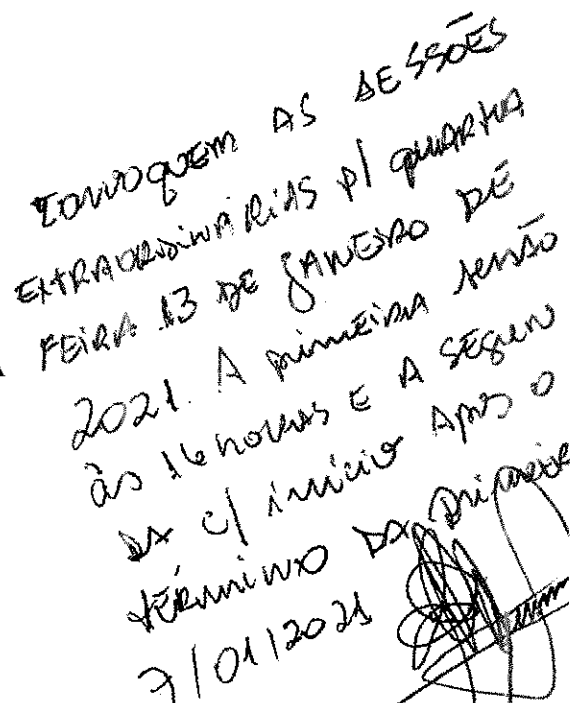 CONVOQUEM AS SESSÕES
EXTRAORDINÁRIAS p/ QUARTA
FEIRA 13 DE JANEIRO DE
2021. A primeira sessão
às 16 horas E A SEGUN
DA c/ início APÓS O
TÉRMINO DA primeira
7/01/2021